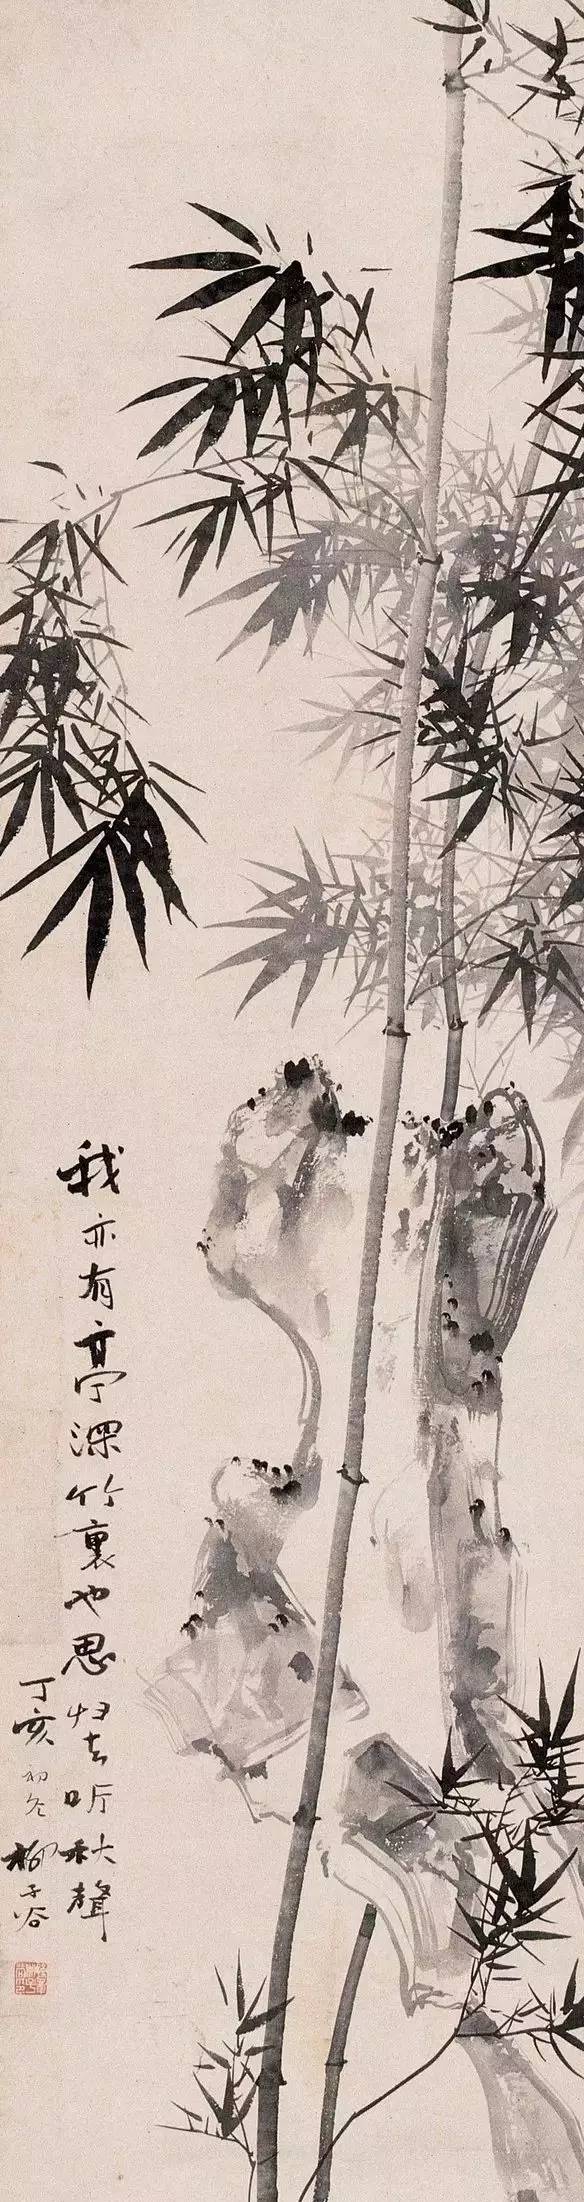 我亦有亭深竹裏也思歸去听秋聲
丁亥初冬柳子谷